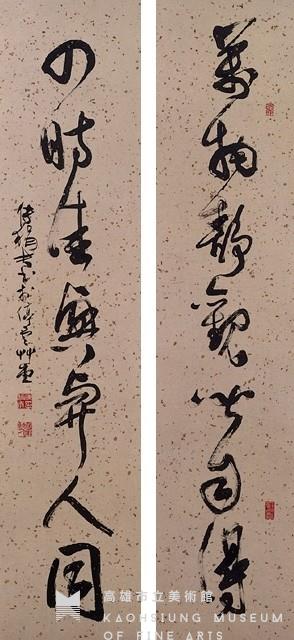 萬物靜觀皆自得
四時佳興與人同
高雄市立美術館
KAOHSIUNG MUSEUM
OF FINE ARTS